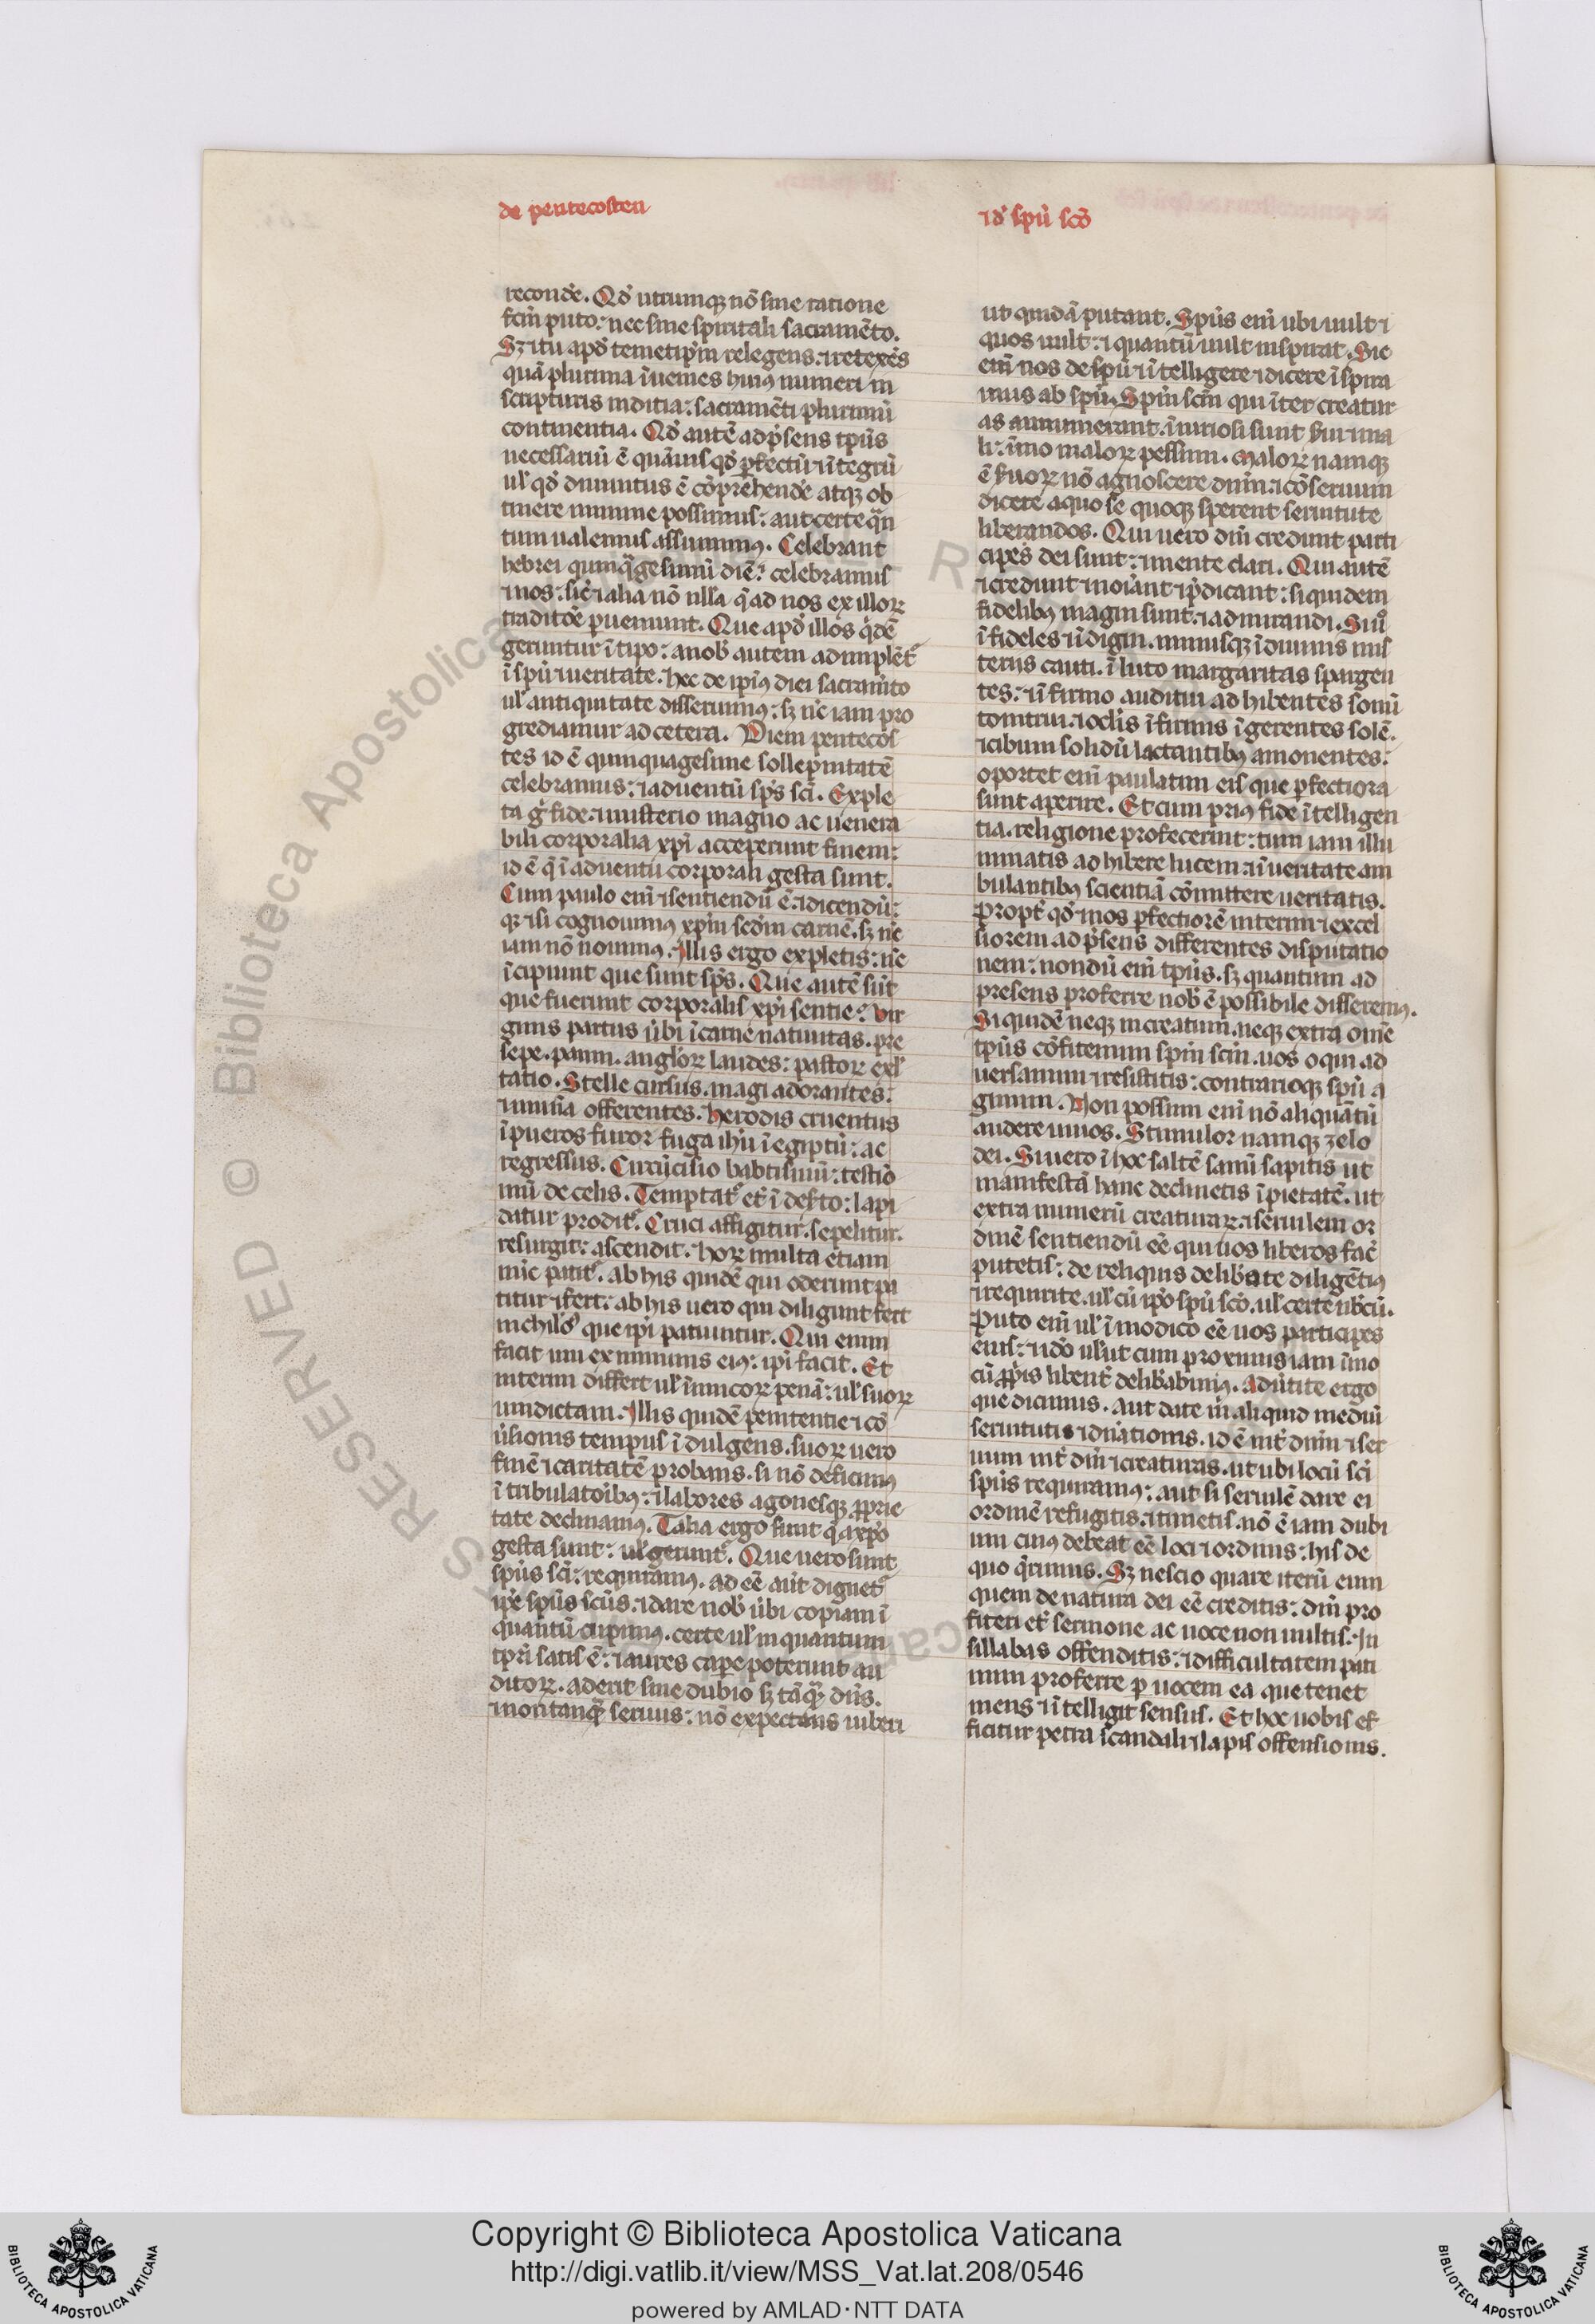 de pentecosten
⁊ dˀ spū scō
recondˀe. Qđ utrumqꝫ nō sine ratione
fcm̄ puto: nec sine spiritali sacramēto.
Sꝫ ⁊ tu apđ temetip̄m relegens. ⁊ retexēs
quā plurima īuenies huiꝰ numeri in
scripturis inditia: sacramēti plurimū
continentia. Qđ autē ad p̄sens tp̄us
necessariū ē quāuis qđ ꝑfectū ⁊ ītegrū
ul̓ qđ diuinitus ē cōprehendˀe atqꝫ ob
tinere minime possimus: aut certe qͣn
tum ualemus assumimꝰ. Celebrant
hebrei quinqͣgesimū diē: celebramus
⁊ nos: sic̄ ⁊ alia nō nulla q̄ ad nos ex illoꝝ
traditōe ꝑueniunt. Que apđ illos qͥdē
geruntur ī tipo: a nob̄ autem adimplētˀ
ī spū ⁊ ueritate. Hec de ip̄iꝰ diei sacram̄to
ul̓ antiquitate disseruimꝰ: sꝫ nc̄ iam pro
grediamur ad cetera. Diem pentecos
tes id ē quinquagesime sollepnitatē
celebramus: ⁊ aduentū sp̄s sci. Exple
ta gͦ fide: misterio magno ac uenera
bili corporalia xp̄i acceperunt finem:
id ē q̄ ī aduentu corporali gesta sunt.
Cum paulo eni ⁊ sentiendū ē: ⁊ dicendū:
qꝫ ⁊ si cognouimꝰ xp̄m scdm carnē. sꝫ nc̄
iam nō nouimꝰ. Illis ergo expletis: nc̄
īcipiunt que sunt sp̄s. Que autē sūt
que fuerunt corporalis xp̄i sentie: Vir
ginis partus ūbi īcarne natiuitas. pre
sepe. panni. angloꝝ laudes: pastoꝝ exl̓
tatio. Stelle cursus. magi adorantes:
⁊ munˀa offerentes. Herodis cruentus
ī pueros furor fuga ihū ī egiptū: ac
regressus. Circūcisio babtismū: testīo
niū de celis. Temptatˀ et̄ ī desˀto: lapi
datur proditˀ. Cruci affigitur. sepelitur.
resurgit: ascendit. Hoꝝ multa etiam
nūc patitˀ. Ab his quidē qui oderunt pa
titur ⁊ fert: ab his uero qui diligunt fert
nichilō que ip̄i patiuntur. Qui enim
facit uni ex minimis eiꝰ: ip̄i facit. Et
interim differt ul̓ inimicoꝝ penā: ul̓ suoꝝ
uindictam. Illis quidē penitentie ⁊ cō
ūsionis tempus īdulgens. suoꝝ uero
finē ⁊ caritatē probans. si nō deficimꝰ
ī tribulatōibꝰ: ⁊ labores agonesqꝫ ꝓ pie
tate declinamꝰ. Talia ergo sunt q̄ a xp̄o
gesta sunt: ul̓ geruntˀ. Que uero sunt
sp̄us sci: requiramꝰ. ad eē aut̄ dignetˀ
ip̄e sp̄us scūs: ⁊ dare nob̄ ūbi copiam ī
quantū cupimꝰ. certe ul̓ in quantum
tp̄ri satis ē: ⁊ aures caꝑe poterunt au
ditoꝝ. aderit sine dubio sꝫ tāqͣꝫ dn̄s.
⁊ non tanqͣꝫ seruus: nō expectans iuberi
ut quidā putant. Sp̄us eni ubi uult ⁊
quos uult: ⁊ quantū uult inspirat. Sic
eni nos de spū ⁊ ītelligere ⁊ dicere īspira
mus ab spū. Sp̄m scm̄ qui īter creatur
as annumerant. īniuriosi sunt serui ma
li: īmo maloꝝ pessimi. Maloꝝ namqꝫ
ē seruoꝝ nō agnoscere dn̄m: ⁊ cōseruum
dicere a quo se quoqꝫ sperent seruitute
liberandos. Qui uero dm̄ credunt parti
cipes dei sunt: ⁊ mente clari. Qui autē
⁊ credunt ⁊ noiānt ⁊ p̄dicant: siquidem
fidelibꝰ magni sunt. ⁊ admirandi. Sin̄
īfideles ⁊ īdigni. minusqꝫ īdiuinis mis
teriis cauti. ī luto margaritas spargen
tes: ⁊ īfirmo auditui adhibentes sonū
tonitrui. ⁊ oclīs īfirmis īgerentes solē.
⁊ cibum solidū lactantibꝰ amonentes:
oportet eni paulatim eis que ꝑfectiora
sunt aperire. Et cum priꝰ fide ītelligen
tia. religione profecerint: tum iam illu
minatis adhibere lucem: ⁊ ī ueritate am
bulantibꝰ scientiā cōmittere ueritatis.
Proptˀ qđ ⁊ nos ꝑfectiorē interim ⁊ excel
siorem ad p̄sens differentes disputatio
nem: nondū eni tp̄us. sꝫ quantum ad
presens proferre nob̄ ē possibile disseremꝰ.
Siquidē neqꝫ increatum. neqꝫ extra omē
tp̄us cōfitemini sp̄m scm̄. uos o qui ad
uersamini ⁊ resistitis: contrarioqꝫ spū a
gimini. Non possum eni nō aliquātū
audere in uos. Stimulor namqꝫ zelo
dei. Si uero ī hoc saltē sanū sapitis ut
manifestā hanc declinetis īpietatē. ut
extra numerū creaturaꝝ. ⁊ seruilem or
dinē sentiendū eē qui uos liberos fac̄
putetis: de reliquis delibˀate diligētiꝰ
⁊ requirite. ul̓ cū ip̄o spū scō. ul̓ certe nob̄cū.
Puto eni ul̓ ī modico eē uos participes
eius: ⁊ idō ul̓ ut cum proximis iam īmo
cū ꝓpͥis libentˀ delibˀabimꝰ. Adūtite ergo
que dicimus. Aut date m̄ aliquid mediū
seruitutis ⁊ dn̄ationis. id ē intˀ dn̄m ⁊ ser
uum intˀ dm̄ ⁊ creaturas. ut ubi locū sci
sp̄us requiramꝰ: aut si seruilē dare ei
ordinē refugitis. ⁊ timetis. nō ē iam dubi
um cuiꝰ debeat eē loci ⁊ ordinis: his de
quo qͥrimus. Sꝫ nescio quare iterū eum
quem de natura dei eē creditis: dm̄ pro
fiteri et̄ sermone ac uoce non uultis. In
sillabas offenditis: ⁊ difficultatem pati
mini proferre ꝑ uocem ea que tenet
mens ⁊ ītelligit sensus. Et hoc uobis ef
ficitur petra scandali ⁊ lapis offensionis.
© Biblioteca Apostolica Vaticana
RESERVED
Copyright © Biblioteca Apostolica Vaticana
http://digi.vatlib.it/view/MSS_Vat.lat.208/0546
powered by AMLAD·NTT DATA
BIBLIOTECA APOSTOLICA VATICANA
BIBLIOTECA APOSTOLICA VATICANA